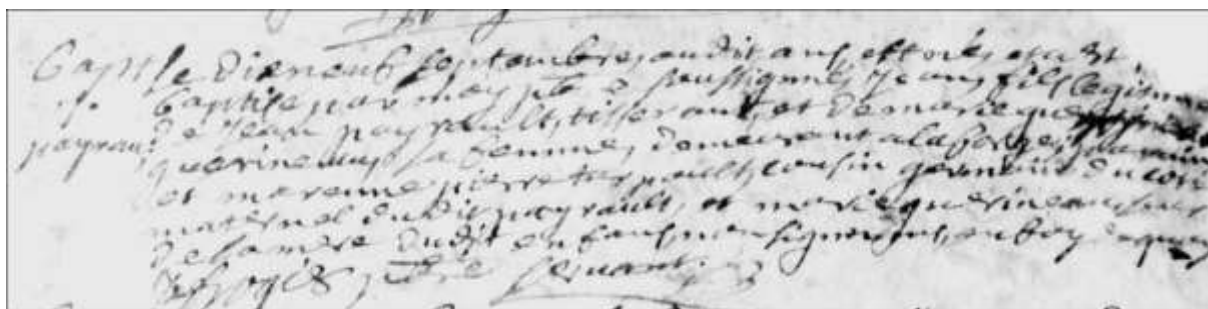 Bapt. le dixneuf septembre, audit an, est né, et a est.
j. baptisé par moy pbre soussigné, Jean, fils legitime
payrau. de Jean payrault, tisserant, et de marie
querineau sa femme, demeurant a la forge, parain
et marenne pierre cousin germain du coté
maternel dudit payrault, et marie querineau sœur
de la mere dudit enfant, non signer, en foy de quoy
pbre servant.